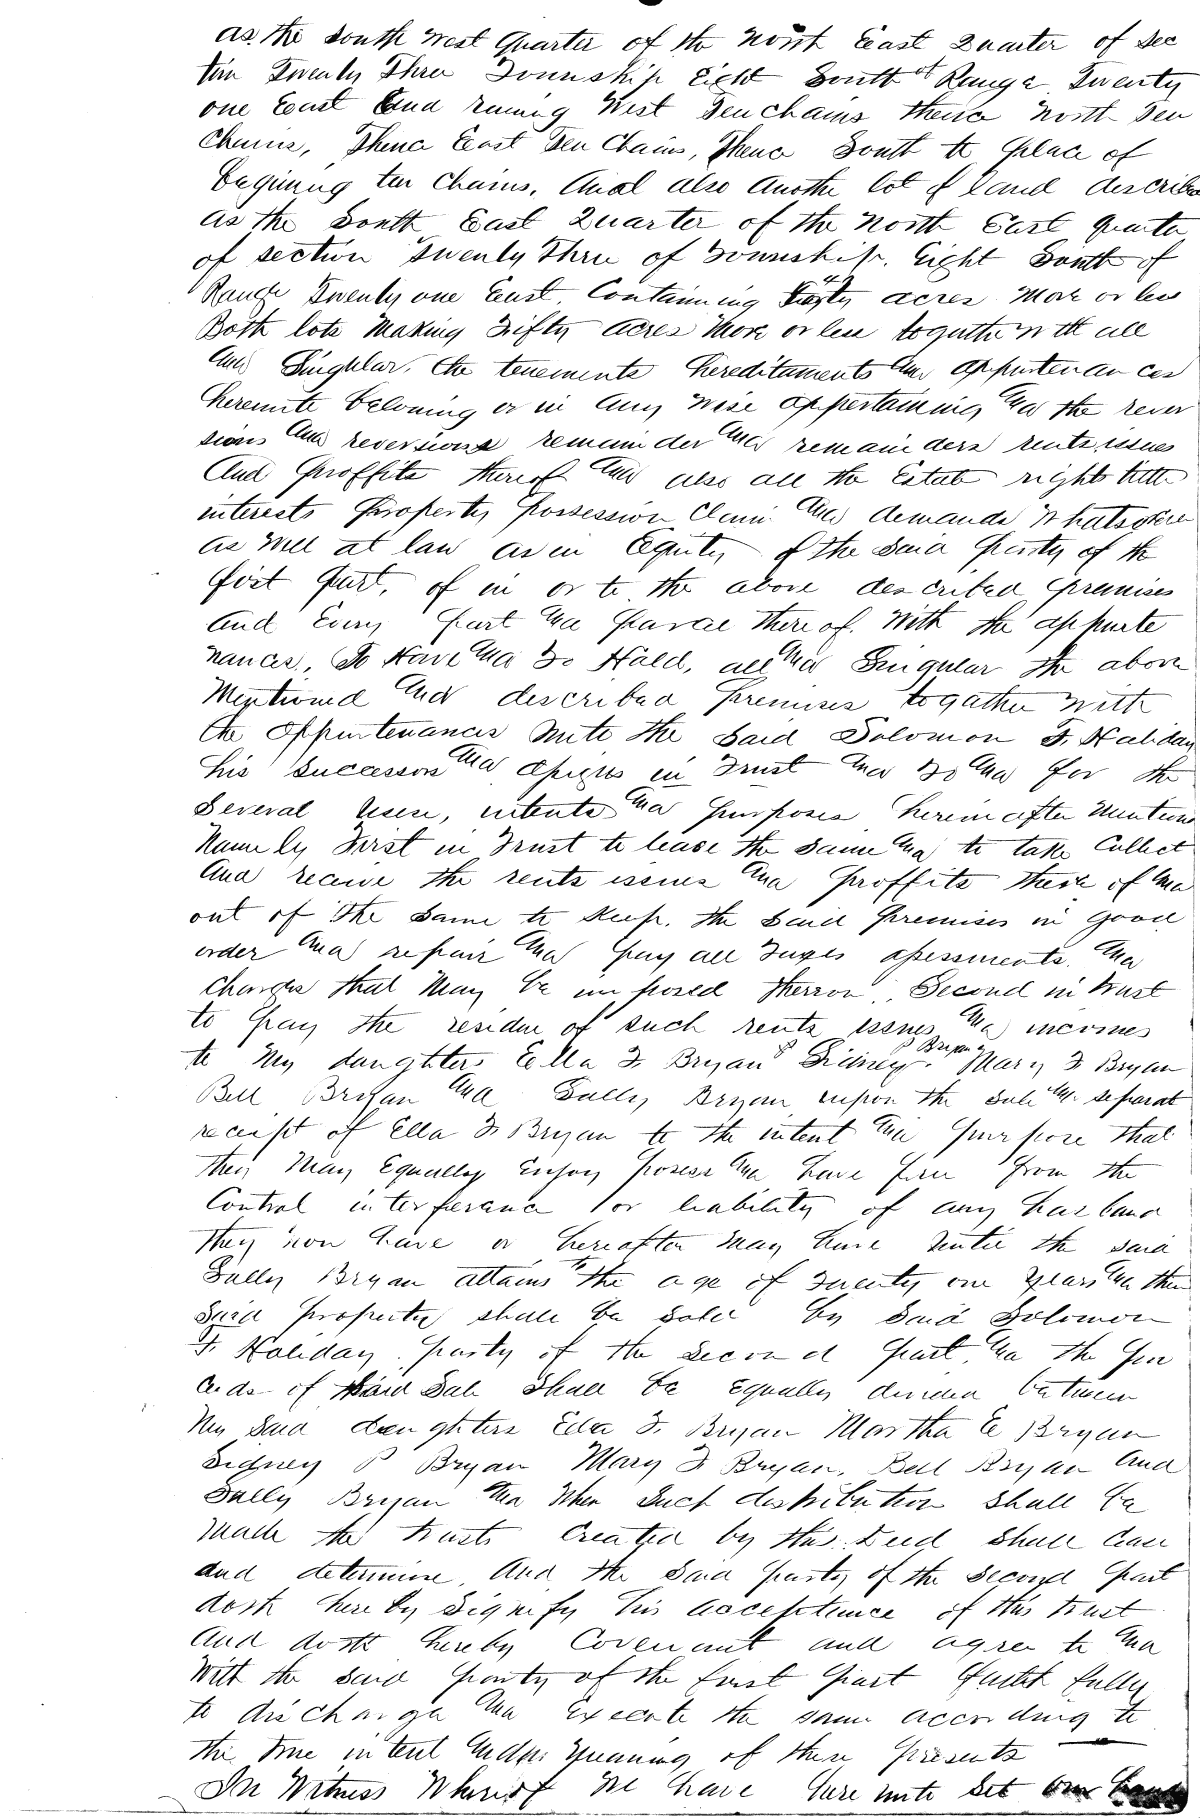 as the South West Quarter of the North East Quarter of Sec
tion Twenty Three Township Eight South of Range Twenty
one East and runing West Ten chains thence North Ten
Chains, Thence East Ten Chains, Thence South to place of
begining ten chains. And also another lot of land described
as the South East Quarter of the North East quarter
of section Twenty Three of Township. Eight South of
Range Twenty one East. Containing forty acres more or less
Both lots making Fifty acres more or less togather with all
and Singular, the tenements hereditaments and appurtenances
hereunto belonging or in any wise appertaining and the rever
sions and reversions remainder and remainders rents issues
And proffits thereof and also all the Estate rights title
interests Property Possession Claim and demands whatsoever
as well at law as in Equity of the said party of the
first part, of in or to the above described premises
and Every part and parcel thereof. With the appurte
nances, To Have and To Hold, all and Singular the above
Mentioned and described Premises togather with
the appurtenances unto the said Solomon F. Haliday
his successors and assigns in Trust and To and for the
Several uses, intents and purposes herein after mentiond
Namely First in Trust to lease the same and to take Collect
and receive the rents issues and proffits there of and
out of the same to keep. the said premises in good
order and repair and pay all Taxes assessments. and
charges that May be imposed therron. Second in trust
to pay the residue of such rents issues and incomes
to My daughters Ella F Bryan & Sidney P Bryan Mary F Bryan
Bell Bryan and Sally Bryan upon the sole and separat
receipt of Ella F Bryan to the intent and purpose that
they May Equally Enjoy posess and have free from the
Control interferance or liability of any husband
They now have or hereafter may have untill the said
Sally Bryan attains to the age of Twenty one years and then
said property shall be sold by said Solomon
F. Haliday party of the second part and the pro
ceeds of said Sale shall be Equally divided between
My said daughters Ella F. Bryan Martha E Bryan
Sidney P Bryan Mary F Bryan, Bell Bryan and
Sally Bryan and When Such distribution shall be
made the trusts Created by this Deed shall Cease
and determine. And the said party of the second part
doth here by Signify his acceptance of this trust
and doth hereby Covenant and agree to and
With the said party of the first part faithfully
to discharge and Execute the same according to
the true intent and meaning of these presents
In Witness Whereof We have here unto Set our hands